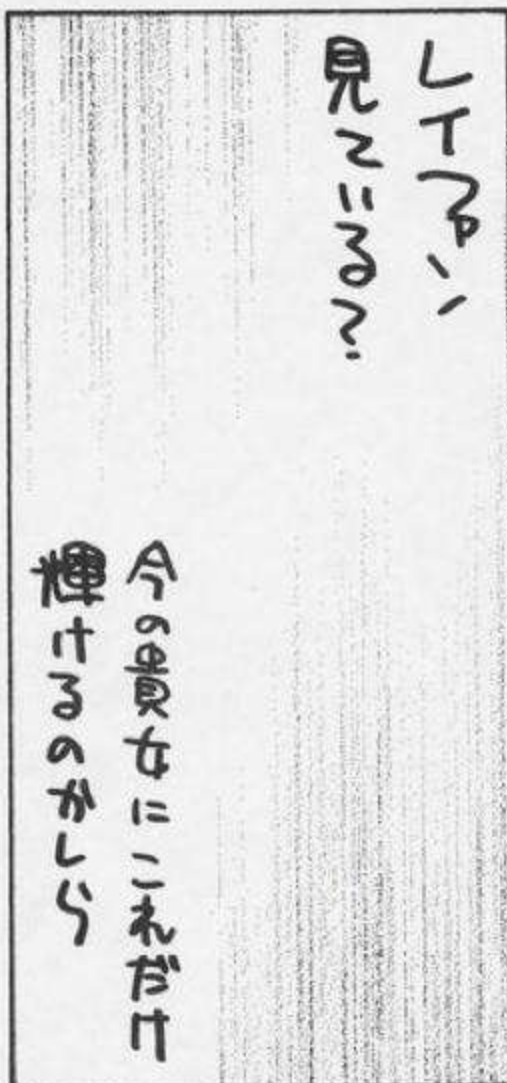 レイアン
見ている?
今の貴女にこれだけ
輝けるのかしら